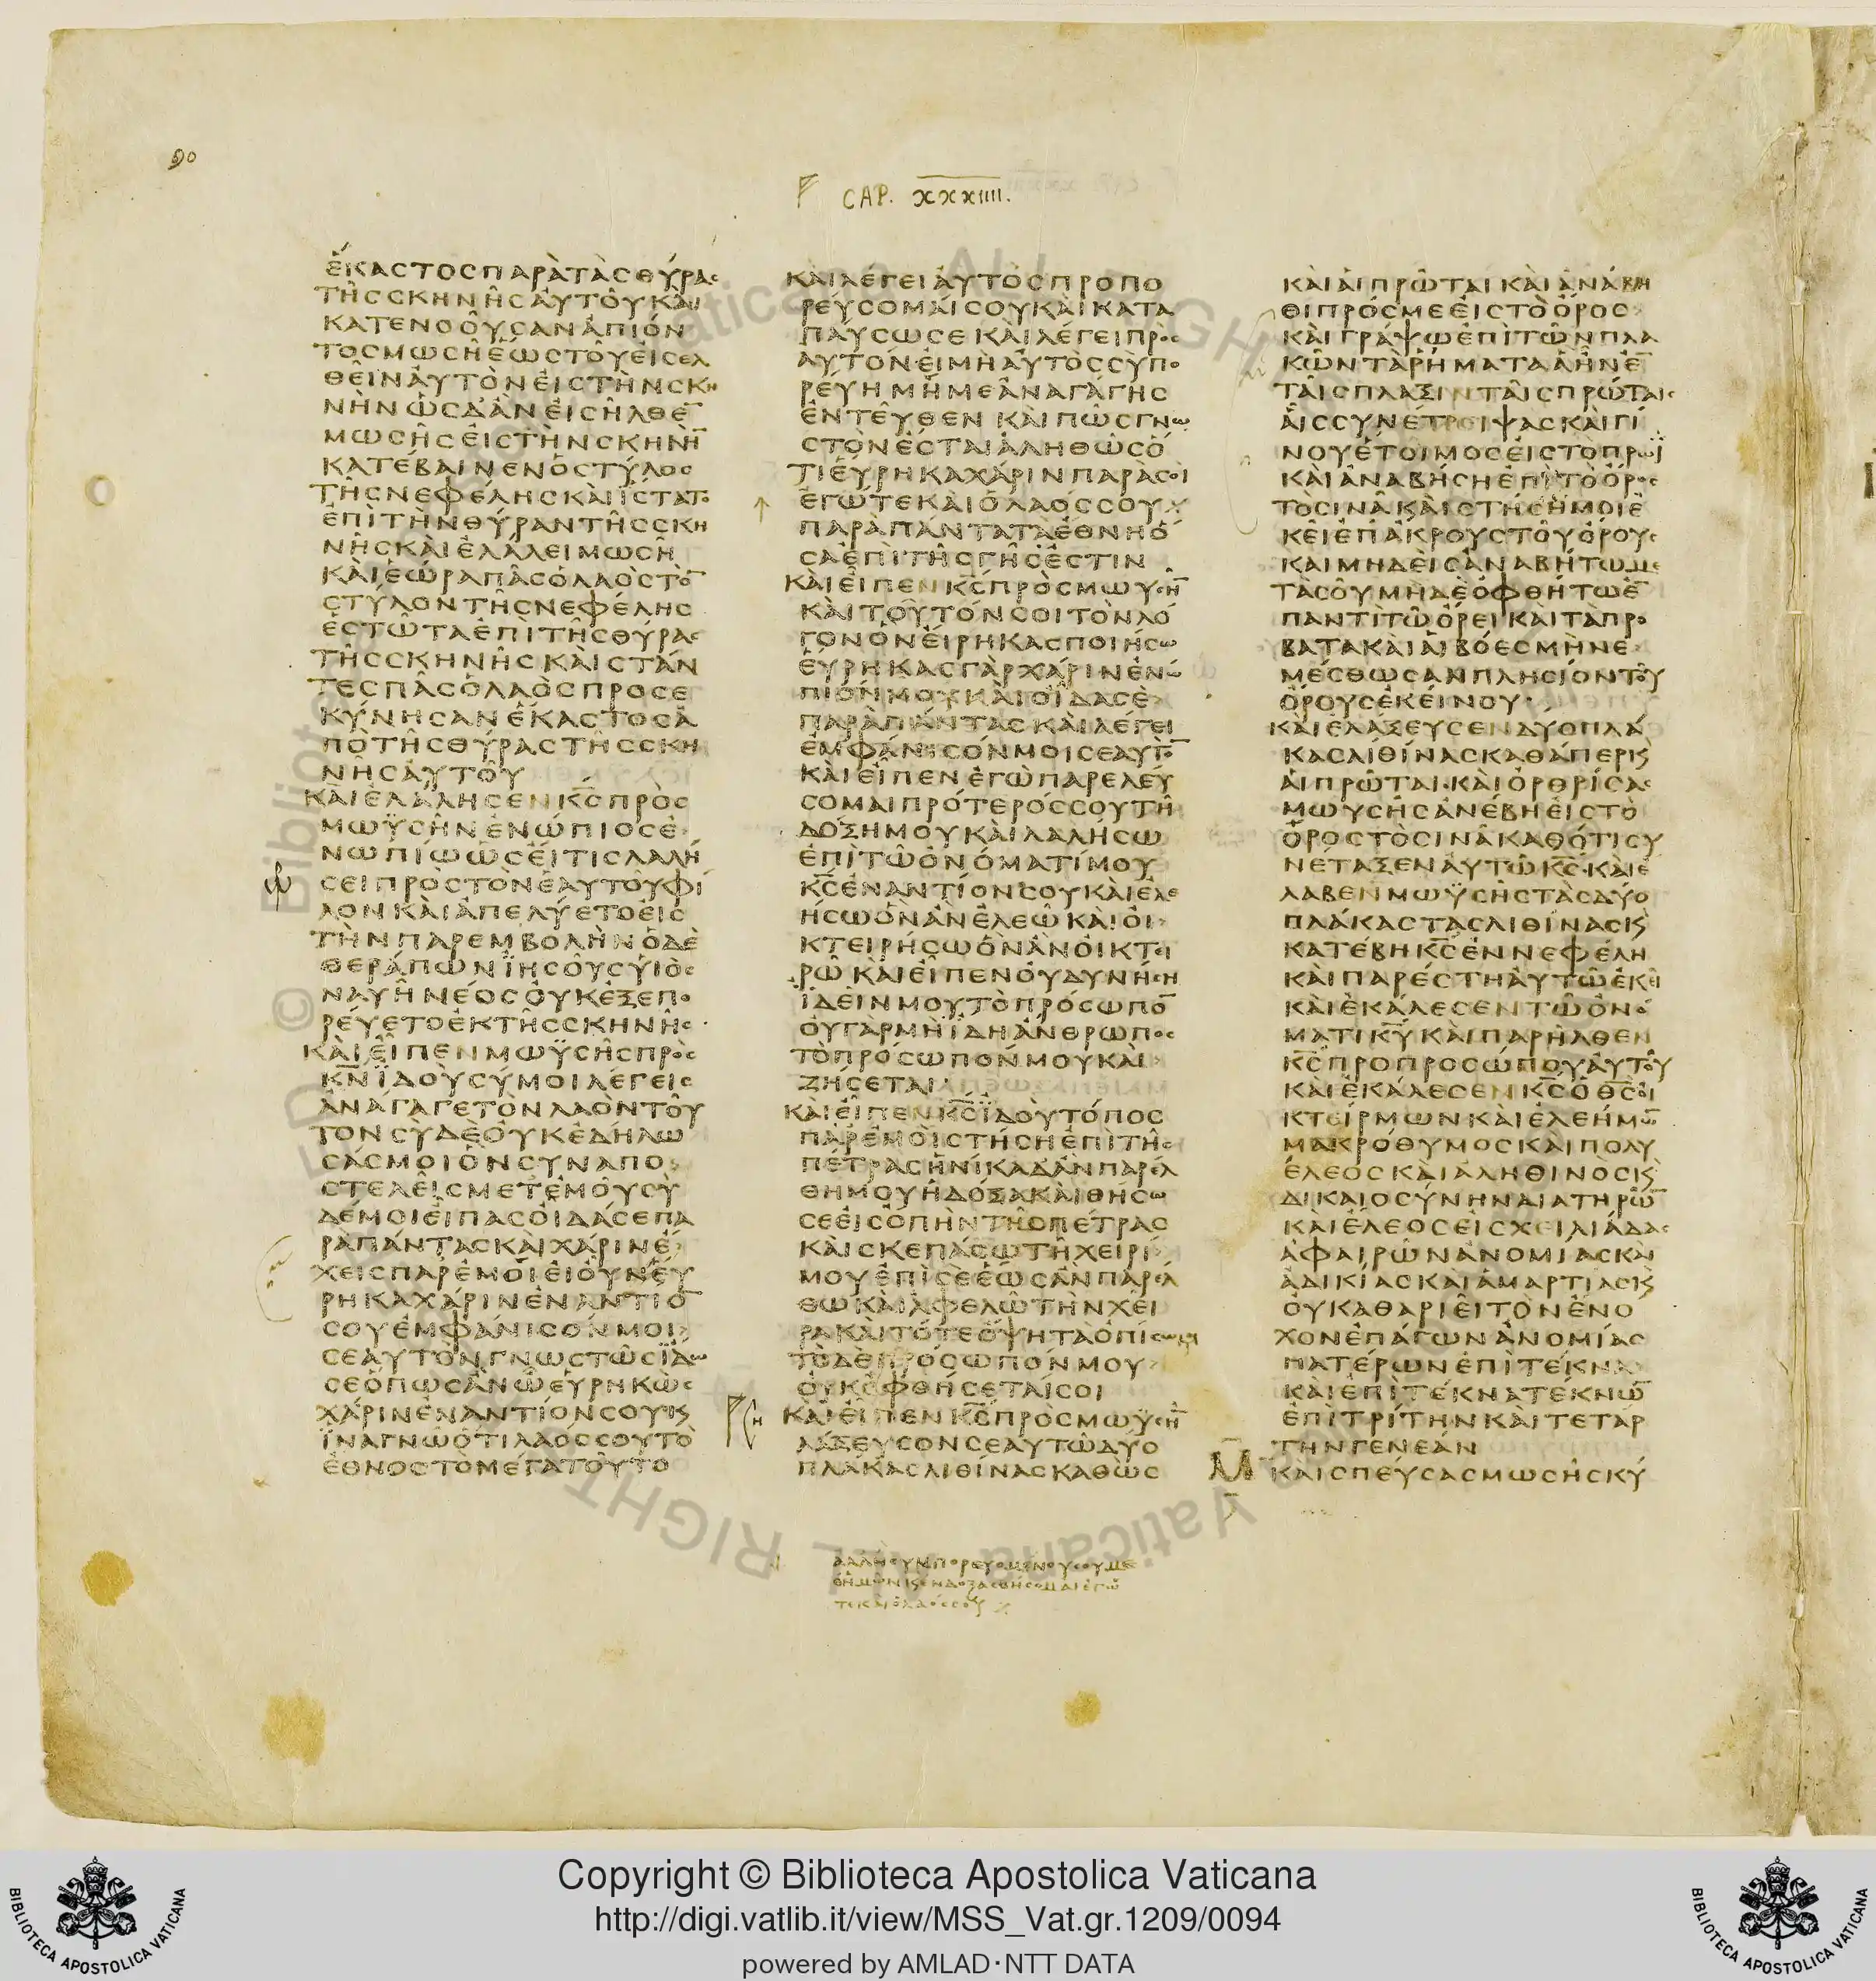 90
CAP. XXXIIII.
ἕκαστος παρὰ τὰς θύρας
τῆς σκηνῆς αὐτοῦ καὶ
κατενοοῦσαν ἀπιόν
τος μωσῆ ἕως τοῦ εἰσελ
θεῖν αὐτὸν εἰς τὴν σκη
νὴν ὡς δ' ἂν εἰσῆλθε̄
μωσῆς εἰς τὴν σκηνὴ̄
κατέβαινεν ὁ στύλος
τῆς νεφέλης καὶ ἵστατο
ἐπὶ τὴν θύραν τῆς σκη
νῆς καὶ ἐλάλει μωσῆ
καὶ ἑώρα πᾶς ὁ λαὸς τὸ̄
στύλον τῆς νεφέλης
ἑστῶτα ἐπὶ τῆς θύρας
τῆς σκηνῆς καὶ στάν
τες πᾶς ὁ λαὸς προσε
κύνησαν ἕκαστος ἀ
πὸ τῆς θύρας τῆς σκη
νῆς αὐτοῦ
καὶ ἐλάλησεν κ̅ς̅ πρὸς
μωϋσῆν ἐνώπιος ἐ
νωπίῳ ὡς εἴ τις λαλή
σει πρὸς τὸν ἑαυτοῦ φί
λον καὶ ἀπελύετο εἰς
τὴν παρεμβολὴν ὁ δὲ
θεράπων ἰησοῦς υἱὸς
ναυὴ νέος οὐκ ἐξεπο
ρεύετο ἐκ τῆς σκηνῆς
καὶ εἶπεν μωϋσῆς πρὸς
κ̅ν̅ ἰδοὺ σύ μοι λέγεις
ἀνάγαγε τὸν λαὸν τοῦ
τον σὺ δὲ οὐκ ἐδήλω
σάς μοι ὃν συναπο
στελεῖς μετ' ἐμοῦ σὺ
δέ μοι εἶπας οἶδά σε πα
ρὰ πάντας καὶ χάριν ἔ
χεις παρ' ἐμοί εἰ οὖν εὕ
ρηκα χάριν ἐναντίο̄
σου ἐμφάνισόν μοι
σεαυτὸν γνωστῶς ἴδω
σε ὅπως ἂν ὦ εὑρηκὼς
χάριν ἐναντίον σου κ̀
ἵνα γνῶ ὅτι λαός σου τὸ
ἔθνος τὸ μέγα τοῦτο
καὶ λέγει αὐτὸς προπο
ρεύσομαί σου καὶ κατα
παύσω σε καὶ λέγει πρὸς
αὐτόν εἰ μὴ αὐτὸς σὺ πο
ρεύῃ μή με ἀναγάγῃς
ἐντεῦθεν καὶ πῶς γνω
στὸν ἔσται ἀληθῶς ὅ
τι εὕρηκα χάριν παρὰ σοὶ
ἐγώ τε καὶ ὁ λαός σου
παρὰ πάντα τὰ ἔθνη ὅ
σα ἐπὶ τῆς γῆς ἐστιν
καὶ εἶπεν κ̅ς̅ πρὸς μωυσῆ̄
καὶ τοῦτόν σοι τὸν λό
γον ὃν εἴρηκας ποιήσω
εὕρηκας γὰρ χάριν ἐνώ
πιόν μου καὶ οἶδά σε
παρὰ πάντας καὶ λέγει
ἐμφάνισόν μοι σεαυτὸ̄
καὶ εἶπεν ἐγὼ παρελεύ
σομαι πρότερός σου τῇ
δόξῃ μου καὶ λαλήσω
ἐπὶ τῷ ὀνόματί μου
κ̅ς̅ ἐναντίον σου καὶ ἐλε
ήσω ὃν ἂν ἐλεῶ καὶ οἰ
κτειρήσω ὃν ἂν οἰκτει
ρῶ καὶ εἶπεν οὐ δυνήσῃ
ἰδεῖν μου τὸ πρόσωπο̄
οὐ γὰρ μὴ ἴδῃ ἄνθρωπος
τὸ πρόσωπόν μου καὶ
ζήσεται
καὶ εἶπεν κ̅ς̅ ἰδοὺ τόπος
παρ' ἐμοί στήσῃ ἐπὶ τῆς
πέτρας ἡνίκα δ' ἂν παρέλ
θῃ μου ἡ δόξα καὶ θήσω
σε εἰς ὀπὴν τῆς πέτρας
καὶ σκεπάσω τῇ χειρί
μου ἐπὶ σὲ ἕως ἂν παρέλ
θω καὶ ἀφελῶ τὴν χεῖ
ρα καὶ τότε ὄψῃ τὰ ὀπίσω μου
τὸ δὲ πρόσωπόν μου
οὐκ ὀφθήσεταί σοι
καὶ εἶπεν κ̅ς̅ πρὸς μωϋσῆ̄
λάξευσον σεαυτῷ δύο
πλάκας λιθίνας καθὼς
καὶ αἱ πρῶται καὶ ἀνάβη
θι πρός με εἰς τὸ ὄρος
καὶ γράψω ἐπὶ τῶν πλα
κῶν τὰ ῥήματα ἃ ἦν ἐ̄
ταῖς πλαξὶν ταῖς πρώταις
αἷς συνέτριψας καὶ γί
νου ἕτοιμος εἰς τὸ πρωΐ
καὶ ἀναβήσῃ ἐπὶ τὸ ὄρος
τὸ σινὰ καὶ στήσῃ μοι ἐ
κεῖ ἐπ' ἄκρου τοῦ ὄρους
καὶ μηδεὶς ἀναβήτω με
τὰ σοῦ μηδὲ ὀφθήτω ἐ̄
παντὶ τῷ ὄρει καὶ τὰ πρό
βατα καὶ αἱ βόες μὴ νε
μέσθωσαν πλησίον τοῦ
ὄρους ἐκείνου
καὶ ἐλάξευσεν δύο πλά
κας λιθίνας καθάπερ κ̀
αἱ πρῶται καὶ ὀρθρίσας
μωυσῆς ἀνέβη εἰς τὸ
ὄρος τὸ σινὰ καθότι συ
νέταξεν αὐτῷ κ̅ς̅ καὶ ἔ
λαβεν μωϋσῆς τὰς δύο
πλάκας τὰς λιθίνας κ̀
κατέβη κ̅ς̅ ἐν νεφέλῃ
καὶ παρέστη αὐτῷ ἐκεῖ
καὶ ἐκάλεσεν τῷ ὀνό
ματι κ̅υ̅ καὶ παρῆλθεν
κ̅ς̅ πρὸ προσώπου αὐτοῦ
καὶ ἐκάλεσεν κ̅ς̅ ὁ θ̅ς̅ οἰ
κτείρμων καὶ ἐλεήμω̄
μακρόθυμος καὶ πολυ
έλεος καὶ ἀληθινὸς κ̀
δικαιοσύνην διατηρῶ̄
καὶ ἔλεος εἰς χειλιάδας
ἀφαιρῶν ἀνομίας καὶ
ἀδικίας καὶ ἁμαρτίας κ̀
οὐ καθαριεῖ τὸν ἔνο
χον ἐπάγων ἀνομίας
πατέρων ἐπὶ τέκνα
καὶ ἐπὶ τέκνα τέκνω̄
ἐπὶ τρίτην καὶ τετάρ
την γενεάν
καὶ σπεύσας μωσῆς κύ
ἀλλ' ἢ συμπορευομένου σου με
θ' ἡμῶν κ̀ ἐνδοξασθήσομαι ἐγώ
τε καὶ ὁ λαός σου
Copyright © Biblioteca Apostolica Vaticana
http://digi.vatlib.it/view/MSS_Vat.gr.1209/0094
powered by AMLAD·NTT DATA
BIBLIOTECA APOSTOLICA VATICANA
BIBLIOTECA APOSTOLICA VATICANA